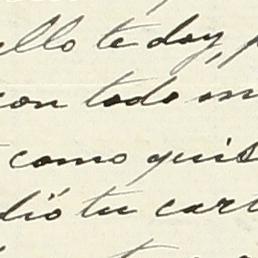 ello te doy, p
con todo m
como quis
dió tu cart